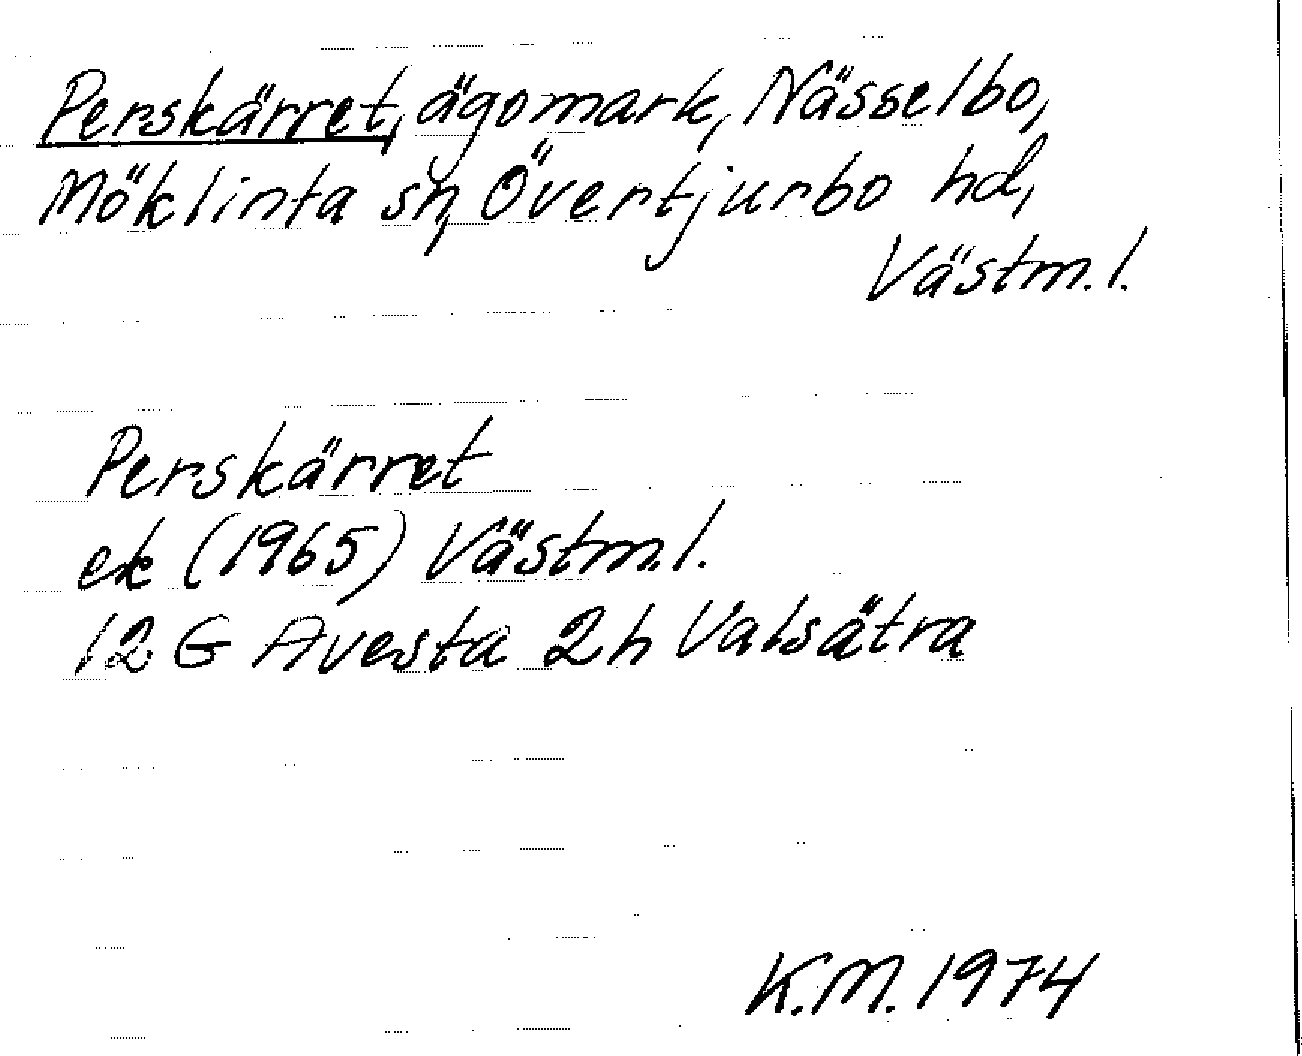 Perskärret, ägomark, Nässelbo,
Möklinta sn, Övertjurbo hd,
Västm. l.
Perskärret
ek (1965) Västm. l.
12 G Avesta 2h Valsätra
K.M. 1974